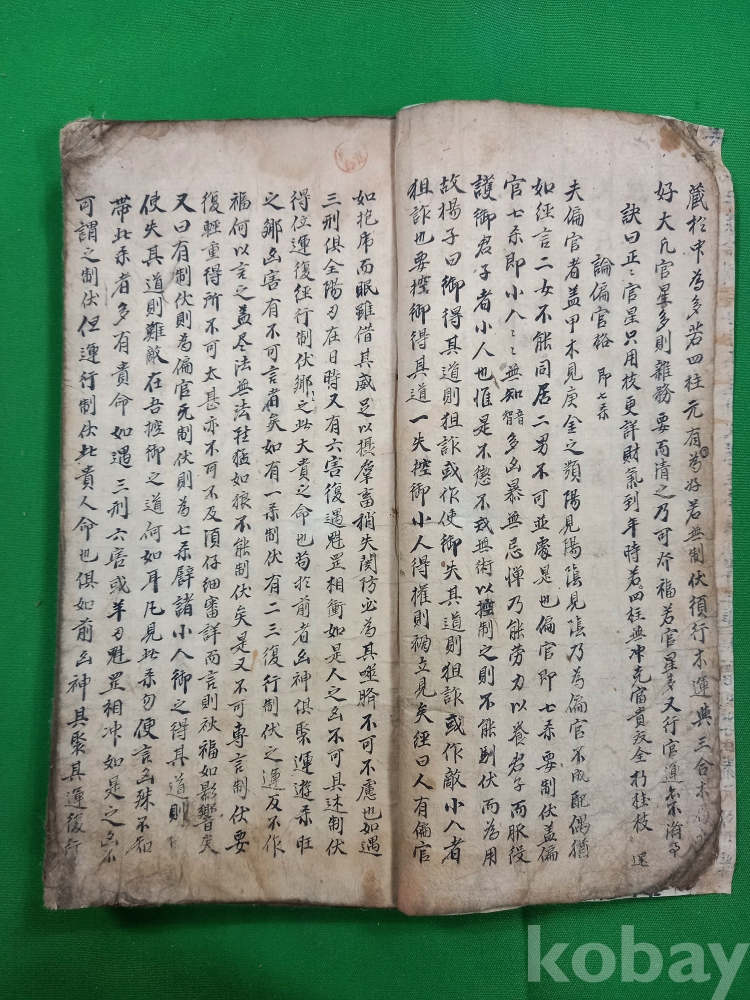 藏於中為多若四柱元有為好若無制伏須行木運與三合木局
好大凡官星多則雜務要而清之乃可為福若官星多又行官運亦不濟事
訣曰正ミ官星只用枝更詳財氣到年時若四柱無冲尅富貴双全折桂枝 還
論偏官格 即七杀
夫偏官者盖甲木見庚金之類陽見陽陰見陰乃為偏官不成配偶猶
如經言二女不能同居二男不可並處是也偏官即七杀要制伏盖偏
官七杀即小人ミミ無知多凶暴無忌憚乃能勞力以養君子而服役
護御君子者小人也惟是不懲不戒無術以控制之則不能馴伏而為用
故楊子曰御得其道則狙詐或作使御失其道則狙詐或作敵小人者
狙詐也要控御得其道一失控御小人得權則禍立見矣經曰人有偏官
如抱虎而眠雖借其威足以攝羣畜稍失関防必為其噬臍不可不慮也如遇
三刑俱全陽刃在日時又有六害復遇魁罡相衝如是人之凶不可具述制伏
得位運復經行制伏鄉之此大貴之命也苟於前者凶神俱聚運遊杀旺
之鄉凶害有不可言者矣如有一杀制伏有二三復行制伏之運反不作
福何以言之盖尽法無法雖猛如狼不能制伏矣是又不可專言制伏要
復輕重得所不可太甚亦不可不及須仔細審詳而言則禍福如影響矣
又曰有制伏則為偏官元制伏則為七杀譬諸小人御之得其道則
使失其道則難敵在吾控御之道何如耳凡見此杀勿使言凶殊不知
帶此杀者多有貴命如遇三刑六害或羊刃魁罡相冲如是之凶不
可謂之制伏但運行制伏此貴人命也俱如前凶神具聚其運復行
kobay